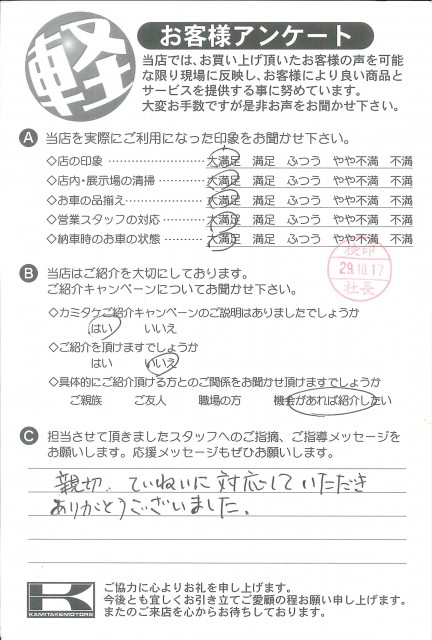 軽
お客様アンケート
当店では、お買い上げ頂いたお客様の声を可能
な限り現場に反映し、お客様により良い商品と
サービスを提供する事に努めています。
大変お手数ですが是非お声をお聞かせ下さい。
A 当店を実際にご利用になった印象をお聞かせ下さい。
◇店の印象 …………………… 大満足 満足 ふつう やや不満 不満
◇店内・展示場の清掃 ………… 大満足 満足 ふつう やや不満 不満
◇お車の品揃え ………………… 大満足 満足 ふつう やや不満 不満
◇営業スタッフの対応 ………… 大満足 満足 ふつう やや不満 不満
◇納車時のお車の状態 ………… 大満足 満足 ふつう やや不満 不満
検印
29.10.17
社長
B 当店はご紹介を大切にしております。
ご紹介キャンペーンについてお聞かせ下さい。
◇カミタケご紹介キャンペーンのご説明はありましたでしょうか
はい いいえ
◇ご紹介を頂けますでしょうか
はい いいえ
◇具体的にご紹介頂ける方とのご関係をお聞かせ頂けますでしょうか
ご親族 ご友人 職場の方 機会があれば紹介したい
C 担当させて頂きましたスタッフへのご指摘、ご指導メッセージを
お願いします。応援メッセージもぜひお願いします。
親切、ていねいに対応していただき
ありがとうございました。
KAMITAKEMOTORS
ご協力に心よりお礼を申し上げます。
今後とも宜しくお引き立てご愛顧の程お願い申し上げます。
またのご来店を心からお待ちしております。